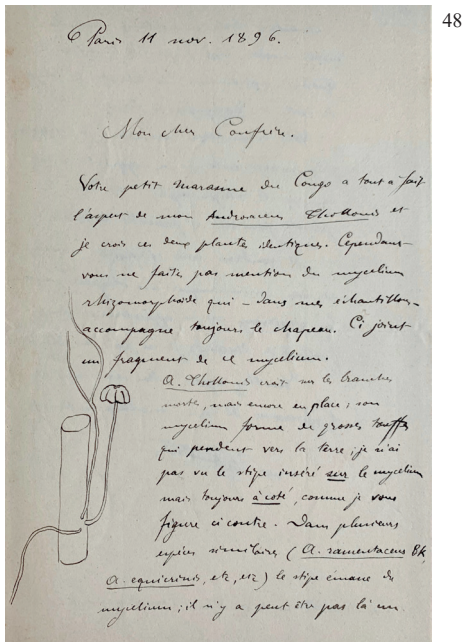 48
Paris 11 nov. 1896.
Mon cher Confrère.
Votre petit marasme du Congo a tout à fait
l'aspect de mon Androsaceus Thollonis et
je crois ces deux plantes identiques. Cependant
vous ne faites pas mention du mycelium
rhizomorphoïde qui – dans mes échantillons –
accompagne toujours le chapeau. Ci joint
un fragment de ce mycelium.
A. Thollonis croit sur les branches
mortes, mais encore en place; son
mycelium forme de grosses touffes
qui pendent vers la terre; je n'ai
pas vu le stipe inséré sur le mycelium
mais toujours à côté, comme je vous
figure ci contre. Dans plusieurs
espèces similaires (A. ramentaceus Bk,
A. equicrinis, etc, etc) le stipe émane du
mycelium; il n'y a peut être pas là un